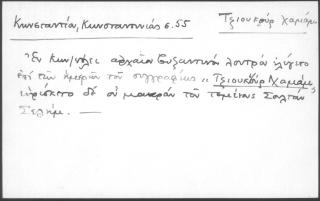 Κωνσταντία, Κωνσταντινιάς σ. 55
Τζιουκούρ Χαμάμ
Ἐν Κων/πόλει ἀρχαῖα βυζαντινά λουτρά ἐλέγετο
ἐπί τῶν ἡμερῶν τοῦ συγγραφέως "Τζιουκούρ Χαμάμ"
εὑρίσκετο δέ οὐ μακράν τοῦ τεμένους Σουλτάν
Σελήμ. —